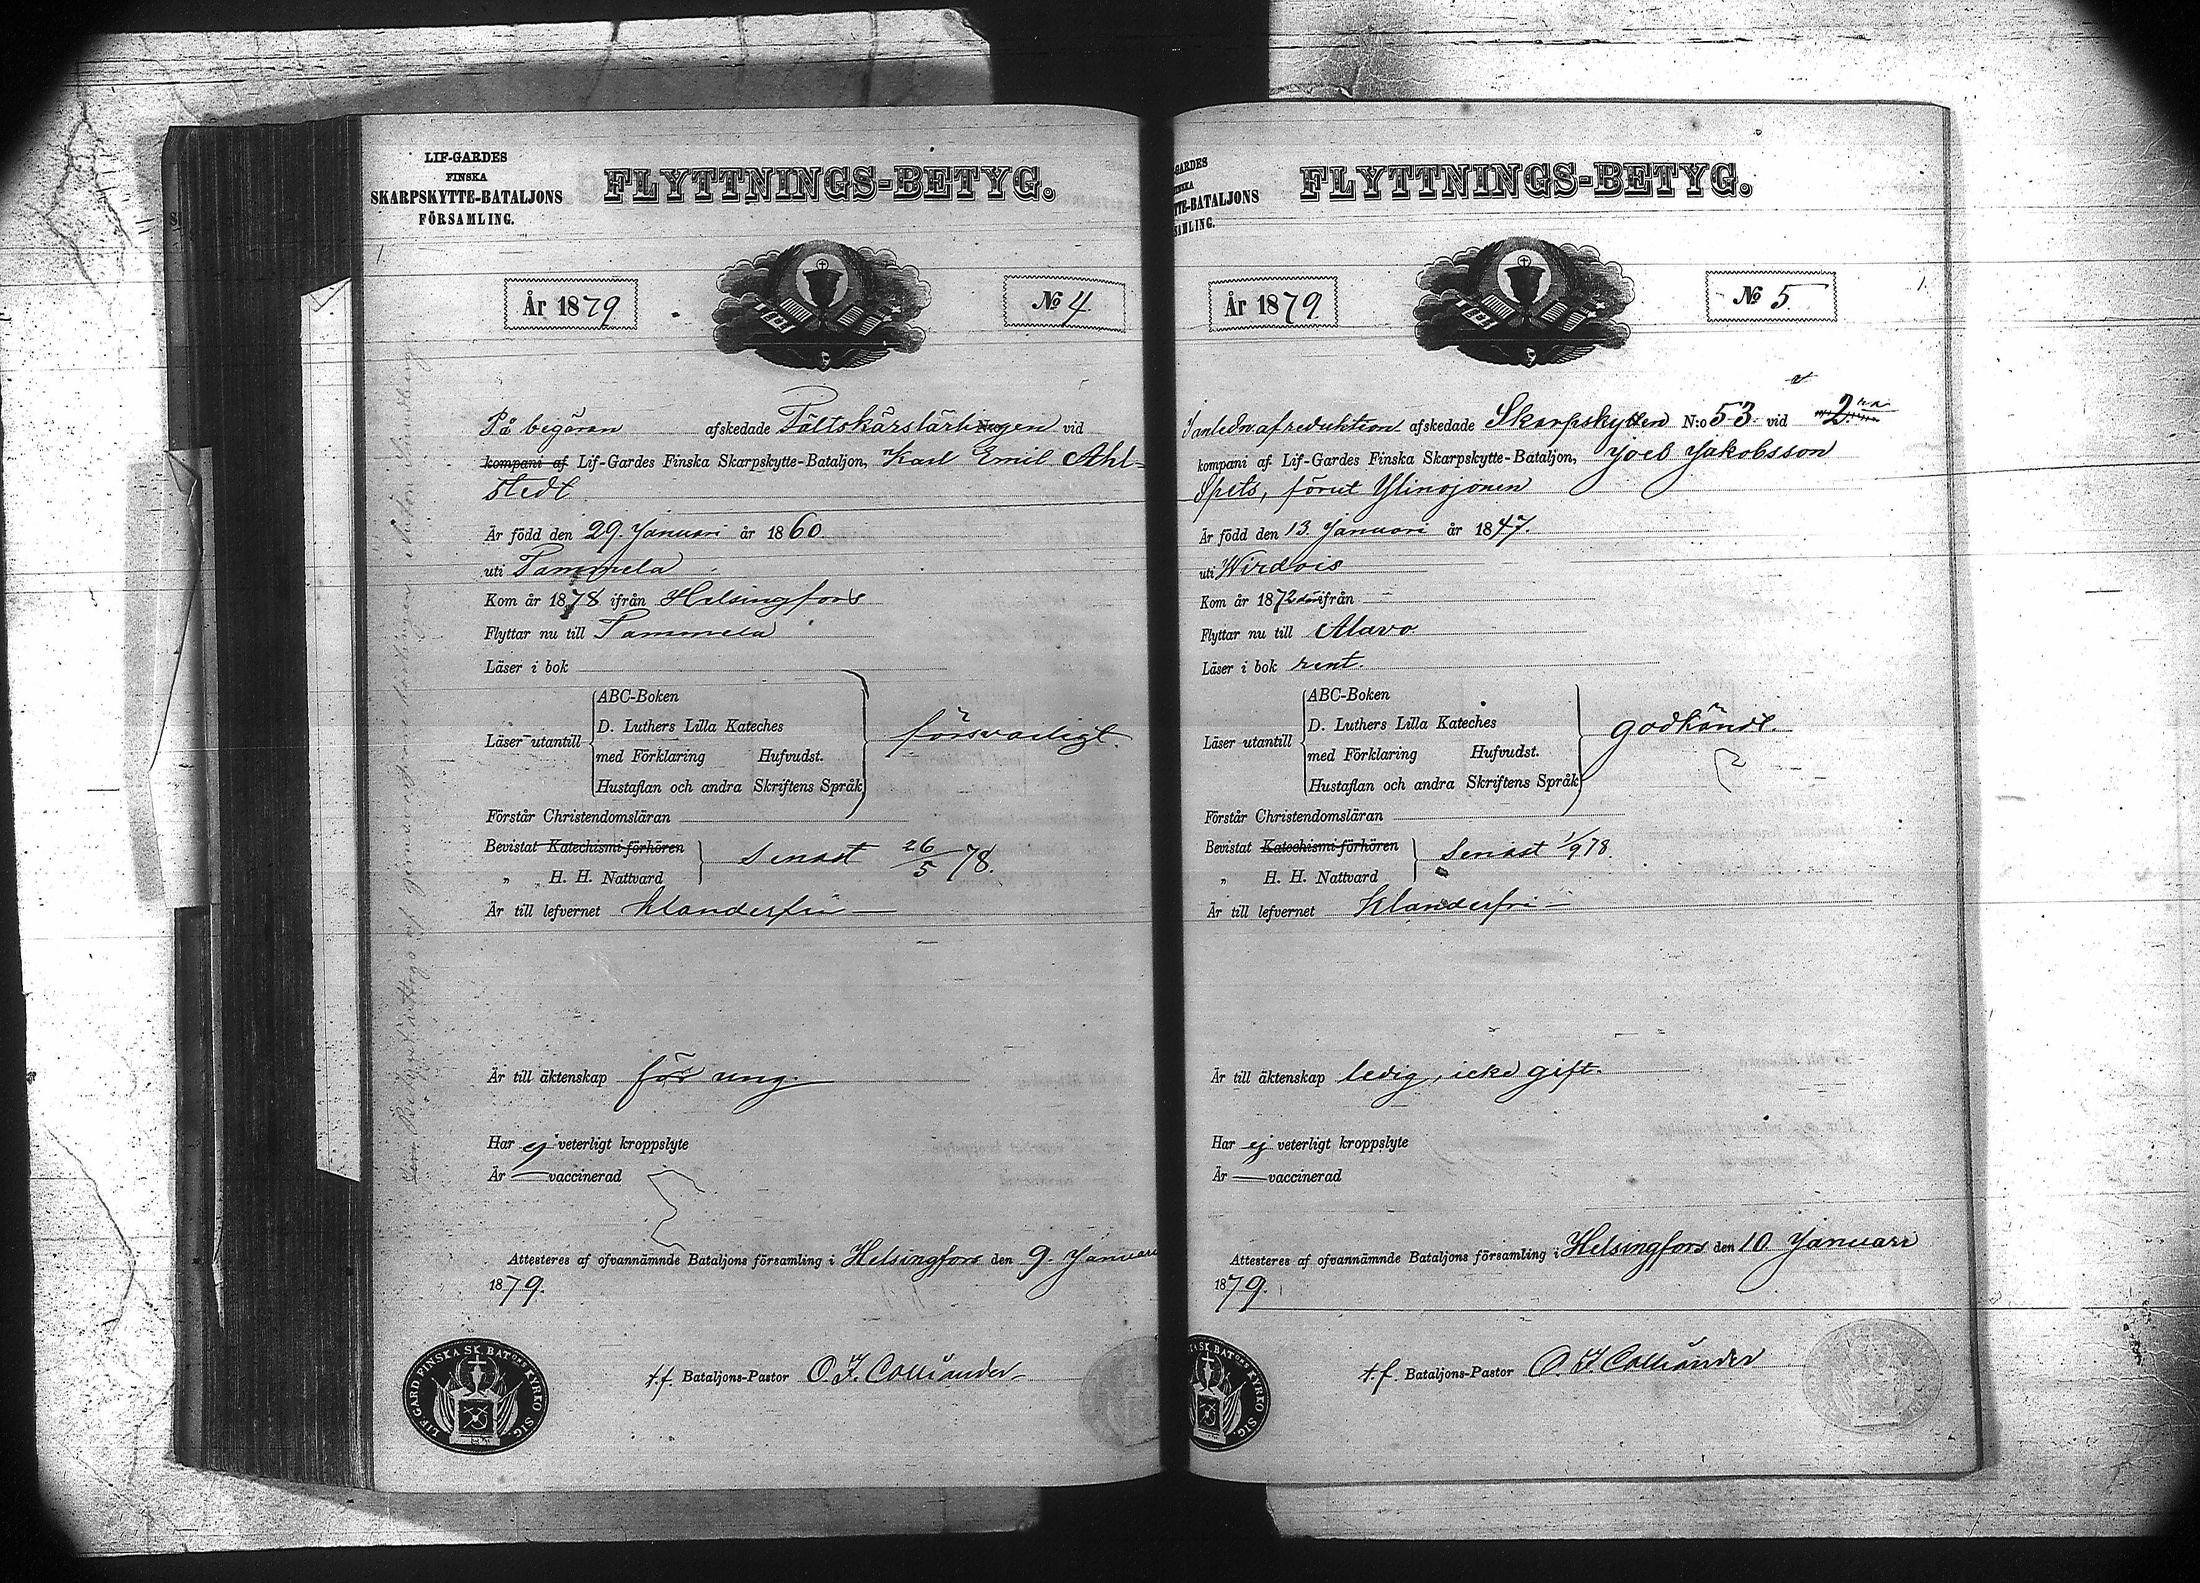 LIF-GARDES
FINSKA
SKARPSKYTTE-BATALJONS
FÖRSAMLING.
FLYTTNINGS-BETYG.
År 1879
№ 4
På begäran afskedade Fältskärslärlingen vid
kompani af Lif-Gardes Finska Skarpskytte-Bataljon, Karl Emil Ahl-
stedt
Är född den 29. Januari år 1860
uti Tammela
Kom år 1878 ifrån Helsingfors
Flyttar nu till Tammela
Läser i bok
Läser utantill
ABC-Boken
D. Luthers Lilla Kateches
med Förklaring Hufvudst.
Hustaflan och andra Skriftens Språk
försvarligt.
Förstår Christendomsläran
Bevistat Katechismi-förhören
„ H. H. Nattvard
senast 26/5 78.
Är till lefvernet klanderfri —
Är till äktenskap för ung.
Har ej veterligt kroppslyte
Är — vaccinerad
Attesteres af ofvannämnde Bataljons församling i Helsingfors den 9. Januari
1879.
t.f. Bataljons-Pastor O. F. Colliander
LIF.GARD.FINSKA SK.BATONS KYRKO SIG.
Betyget uttogs af
Anton Sundberg
GARDES
INSKA
TTE-BATALJONS
SAMLING.
FLYTTNINGS-BETYG.
År 1879
№ 5
I anledn. af reduktion afskedade Skarpskytten N:o 53 vid 2
kompani af Lif-Gardes Finska Skarpskytte-Bataljon, Joel Jakobsson
Spets, förut Ylinojonen
Är född den 13. Januari år 1847.
uti Wirdois
Kom år 1872 ifrån
Flyttar nu till Alavo
Läser i bok rent.
Läser utantill
ABC-Boken
D. Luthers Lilla Kateches
med Förklaring Hufvudst.
Hustaflan och andra Skriftens Språk
godkändt.
Förstår Christendomsläran
Bevistat Katechismi-förhören
„ H. H. Nattvard
senast 1/9 78.
Är till lefvernet klanderfri —
Är till äktenskap ledig, icke gift.
Har ej veterligt kroppslyte
Är — vaccinerad
Attesteres af ofvannämnde Bataljons församling i Helsingfors den 10 Januari
1879.
t.f. Bataljons-Pastor O. F. Colliander
SK.BATONS KYRKO SIG.